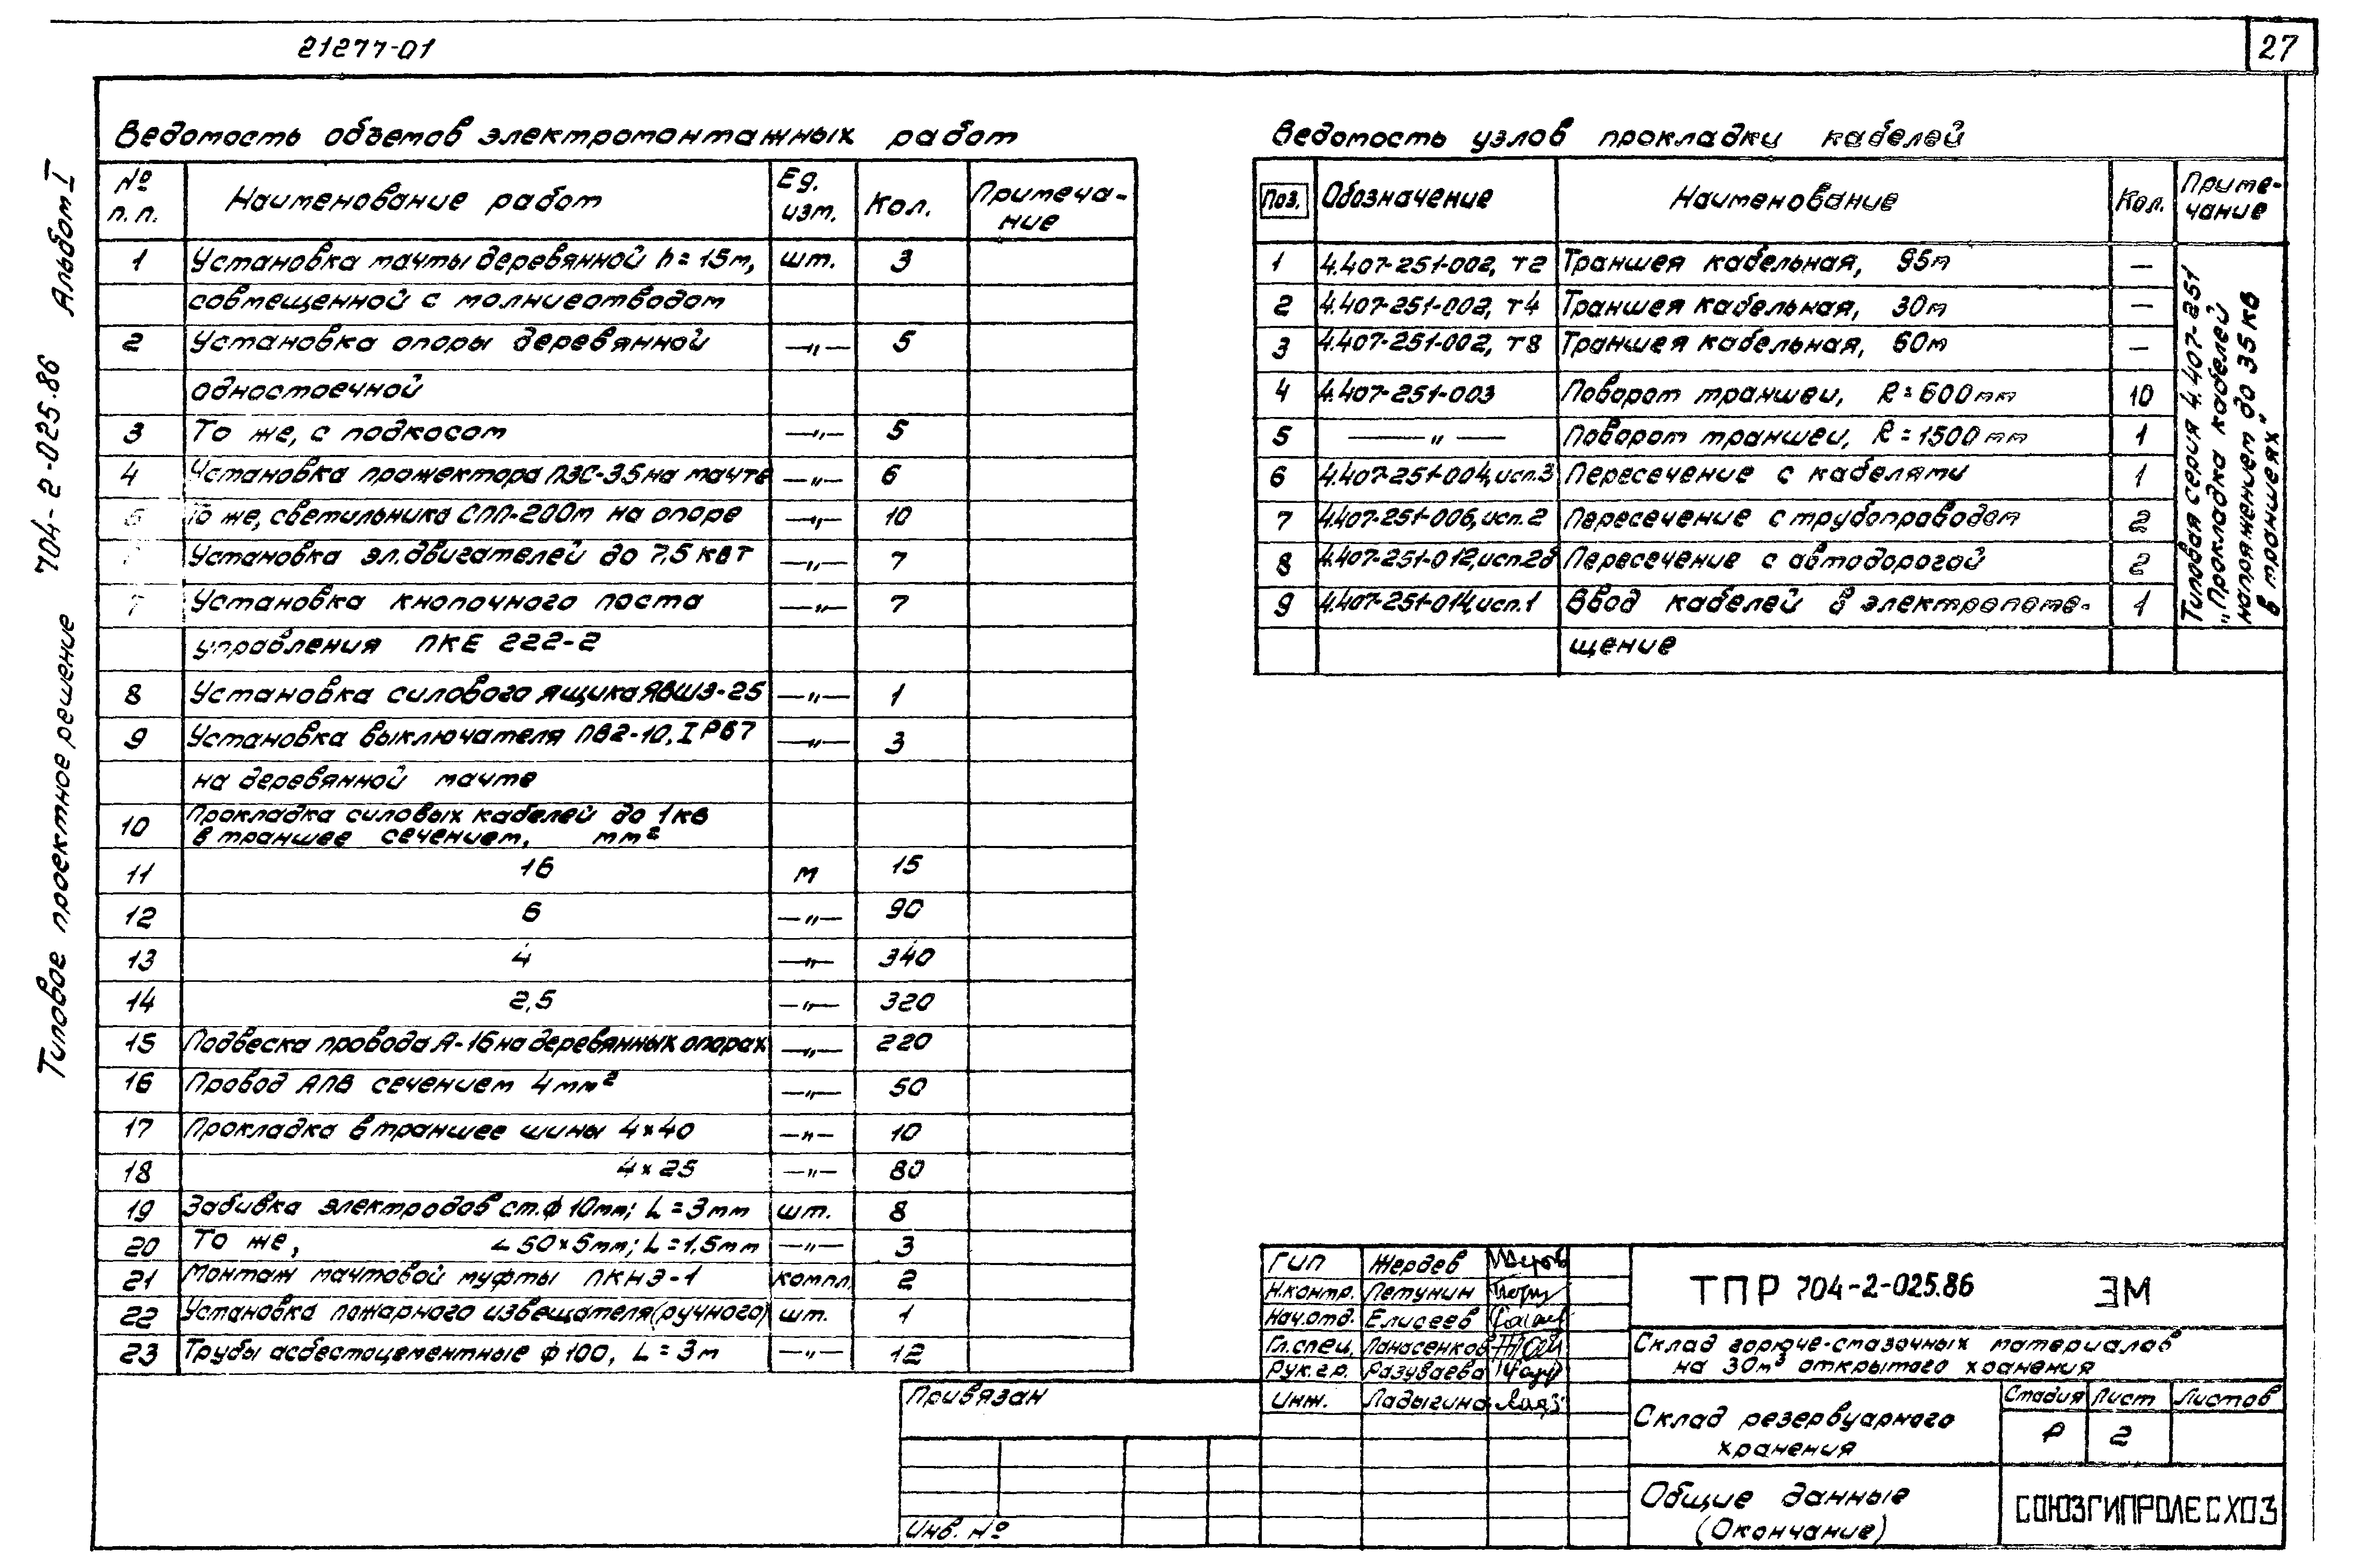 21277-01
27
Типовое проектное решение 704-2-025.86 Альбом I
Ведомость объемов электромонтажных работ
№ п.п. Наименование работ Ед. изм. Кол. Примечание
1 Установка мачты деревянной h=15м, шт. 3
совмещенной с молниеотводом
2 Установка опоры деревянной —"— 5
одностоечной
3 То же, с подкосом —"— 5
4 Установка прожектора ПЗС-35 на мачте —"— 6
То же, светильника СПП-200м на опоре —"— 10
Установка эл.двигателей до 7,5 квт —"— 7
7 Установка кнопочного поста —"— 7
управления ПКЕ 222-2
8 Установка силового ящика ЯВШ3-25 —"— 1
9 Установка выключателя ПВ2-10, IP67 —"— 3
на деревянной мачте
10 Прокладка силовых кабелей до 1кв
в траншее сечением, мм²
11 16 м 15
12 6 —"— 90
13 4 —"— 340
14 2,5 —"— 320
15 Подвеска провода А-16 на деревянных опорах —"— 220
16 Провод АПВ сечением 4мм² —"— 50
17 Прокладка в траншее шины 4×40 —"— 10
18 4×25 —"— 80
19 Забивка электродов ст.ф 10мм; L=3мм шт. 8
20 То же, ∠50×5мм; L=1,5мм —"— 3
21 Монтаж мачтовой муфты ПКНЭ-1 компл. 2
22 Установка пожарного извещателя (ручного) шт. 1
23 Трубы асбестоцементные ф100, L=3м —"— 12
Ведомость узлов прокладки кабелей
Поз. Обозначение Наименование Кол. Примечание
1 4.407-251-002, т2 Траншея кабельная, 95м —
2 4.407-251-002, т4 Траншея кабельная, 30м —
3 4.407-251-002, т8 Траншея кабельная, 60м —
4 4.407-251-003 Поворот траншеи, R=600мм 10
5 —"— Поворот траншеи, R=1500мм 1
6 4.407-251-004, исп.3 Пересечение с кабелями 1
7 4.407-251-006, исп.2 Пересечение с трубопроводом 2
8 4.407-251-012, исп.28 Пересечение с автодорогой 2
9 4.407-251-014, исп.1 Ввод кабелей в электропоме- 1
щение
Типовая серия 4.407-251
"Прокладка кабелей
напряжением до 35 кв
в траншеях"
Привязан
Инв. №
ГИП Жердев
Н.контр. Петунин
Нач.отд. Елисеев
Гл.спец. Панасенков
Рук.гр. Разуваева
Инж. Ладыгина
ТПР 704-2-025.86 ЭМ
Склад горюче-смазочных материалов
на 30м³ открытого хранения
Склад резервуарного
хранения
Стадия Лист Листов
Р 2
Общие данные
(Окончание)
СОЮЗГИПРОЛЕСХОЗ